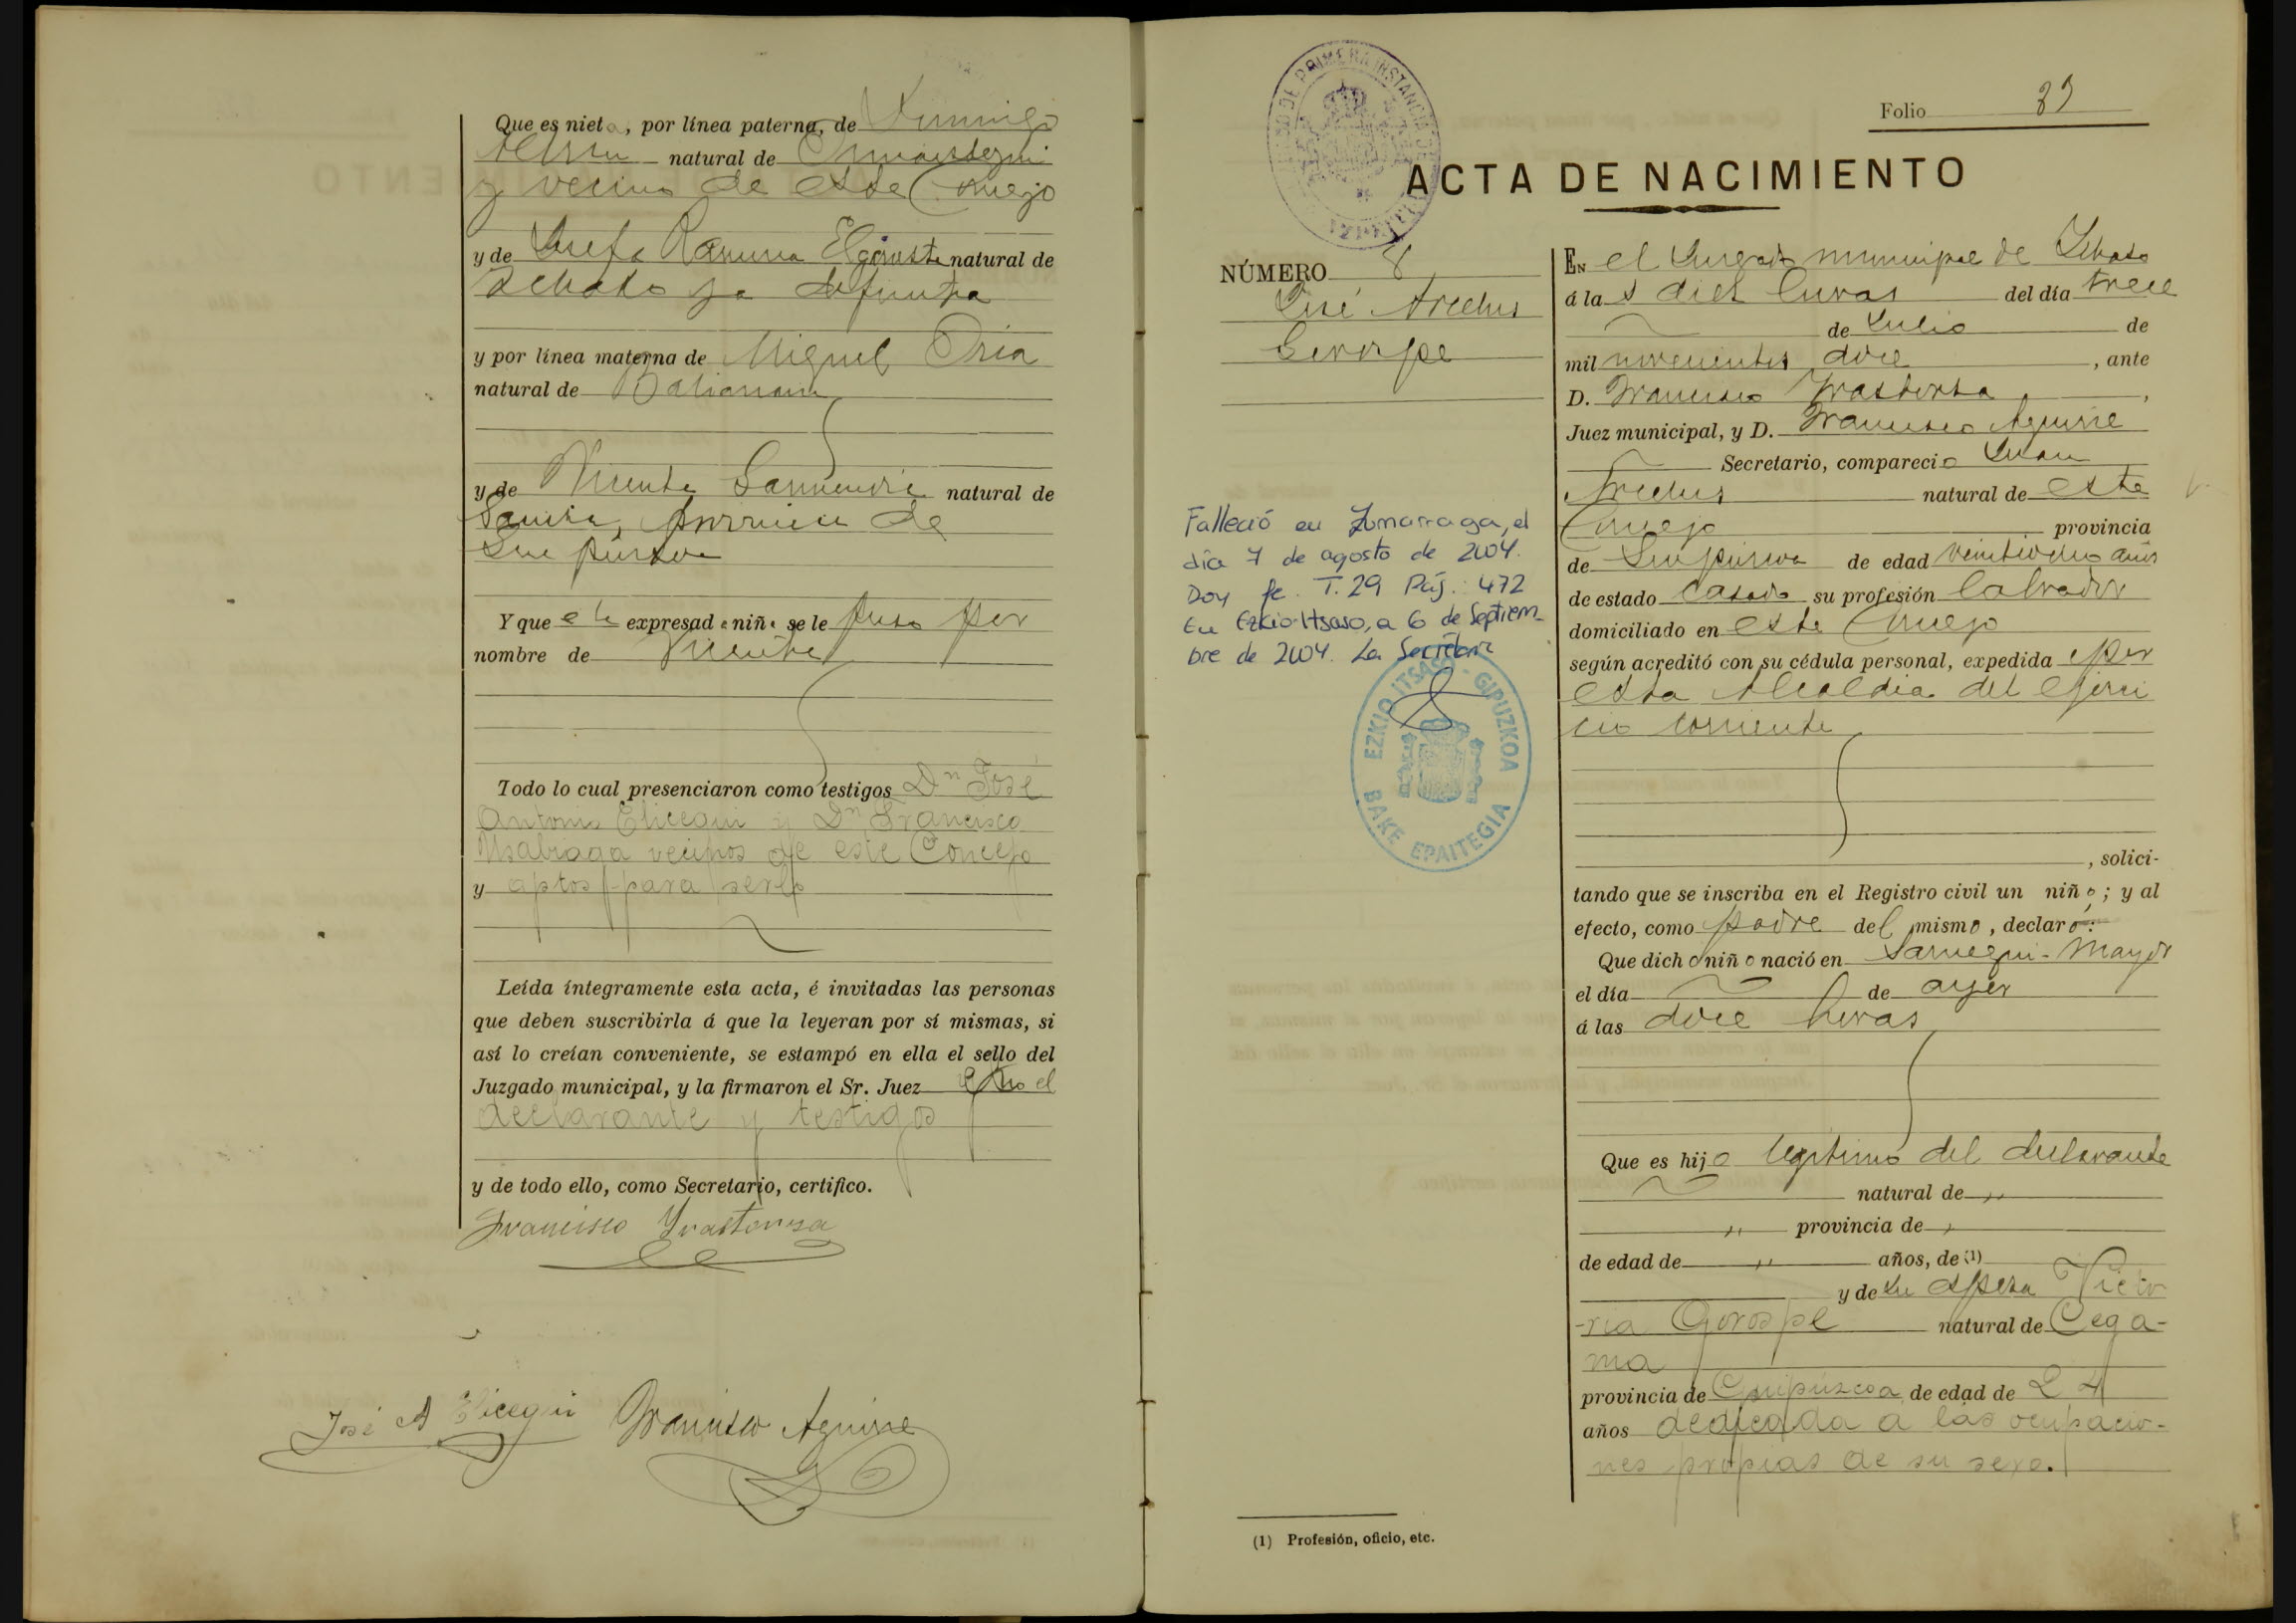 Que es nieta, por línea paterna, de Domingo
natural de Ormaiztegui
y vecino de este Concejo
y de Josefa Ramona Elgarresta natural de
Ichaso ya difunta
y por línea materna de Miguel Oria
natural de
y de Vicenta natural de
provincia de
Guipúzcoa
Y que el expresado niño se le puso por
nombre de Vicente
Todo lo cual presenciaron como testigos Dn José
Antonio Elicegui y Dn Francisco
Usabiaga vecinos de este Concejo
y aptos para serlo
Leída íntegramente esta acta, é invitadas las personas
que deben suscribirla á que la leyeran por sí mismas, si
así lo creían conveniente, se estampó en ella el sello del
Juzgado municipal, y la firmaron el Sr. Juez el
declarante y testigos
y de todo ello, como Secretario, certifico.
Francisco Yrastorza
José A Elicegui Francisco Aguirre
JUZGADO DE PRIMERA INSTANCIA AZPEITIA
Folio
ACTA DE NACIMIENTO
NÚMERO 8
José Arcelus
Gorospe
Falleció en Zumarraga, el
día 7 de agosto de 2004.
Doy fe. T. 29 Pág. 472
En Ezkio-Itsaso, a 6 de Septiem-
bre de 2004. La Secretaria
EZKIO ITSASO - GIPUZKOA
BAKE EPAITEGIA
En el Juzgado municipal de Ichaso
á las diez horas del día trece
de Julio de
mil novecientos doce, ante
D. Francisco Yrastorza,
Juez municipal, y D. Francisco Aguirre
Secretario, compareció Juan
Arcelus natural de este
Concejo provincia
de Guipúzcoa de edad veintiocho años
de estado casado su profesión labrador
domiciliado en este Concejo
según acreditó con su cédula personal, expedida por
esta Alcaldia del ejerci
cio corriente
, solici-
tando que se inscriba en el Registro civil un niño; y al
efecto, como padre del mismo, declaró:
Que dicho niño nació en Sarriegui-Mayor
el día de ayer
á las doce horas
Que es hijo legítimo del declarante
natural de „
„ provincia de „
de edad de „ años, de (1)
y de su esposa Victo
-ria Gorospe natural de Cega-
ma
provincia de Guipúzcoa de edad de 24
años dedicada a las ocupacio-
nes propias de su sexo.
(1) Profesión, oficio, etc.